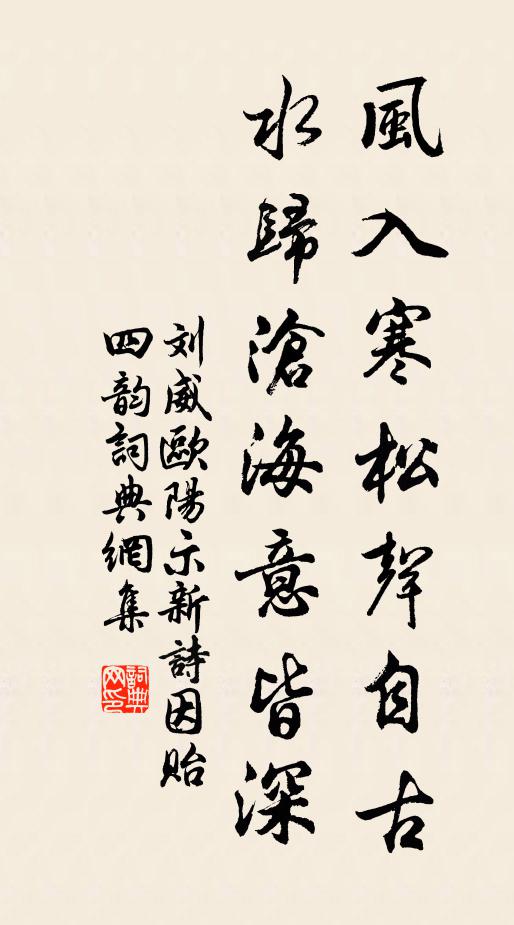 風入寒松聲自古
水歸滄海意皆深
刘威歐陽示新詩因貽
四韵詞典網集
詞典
网印